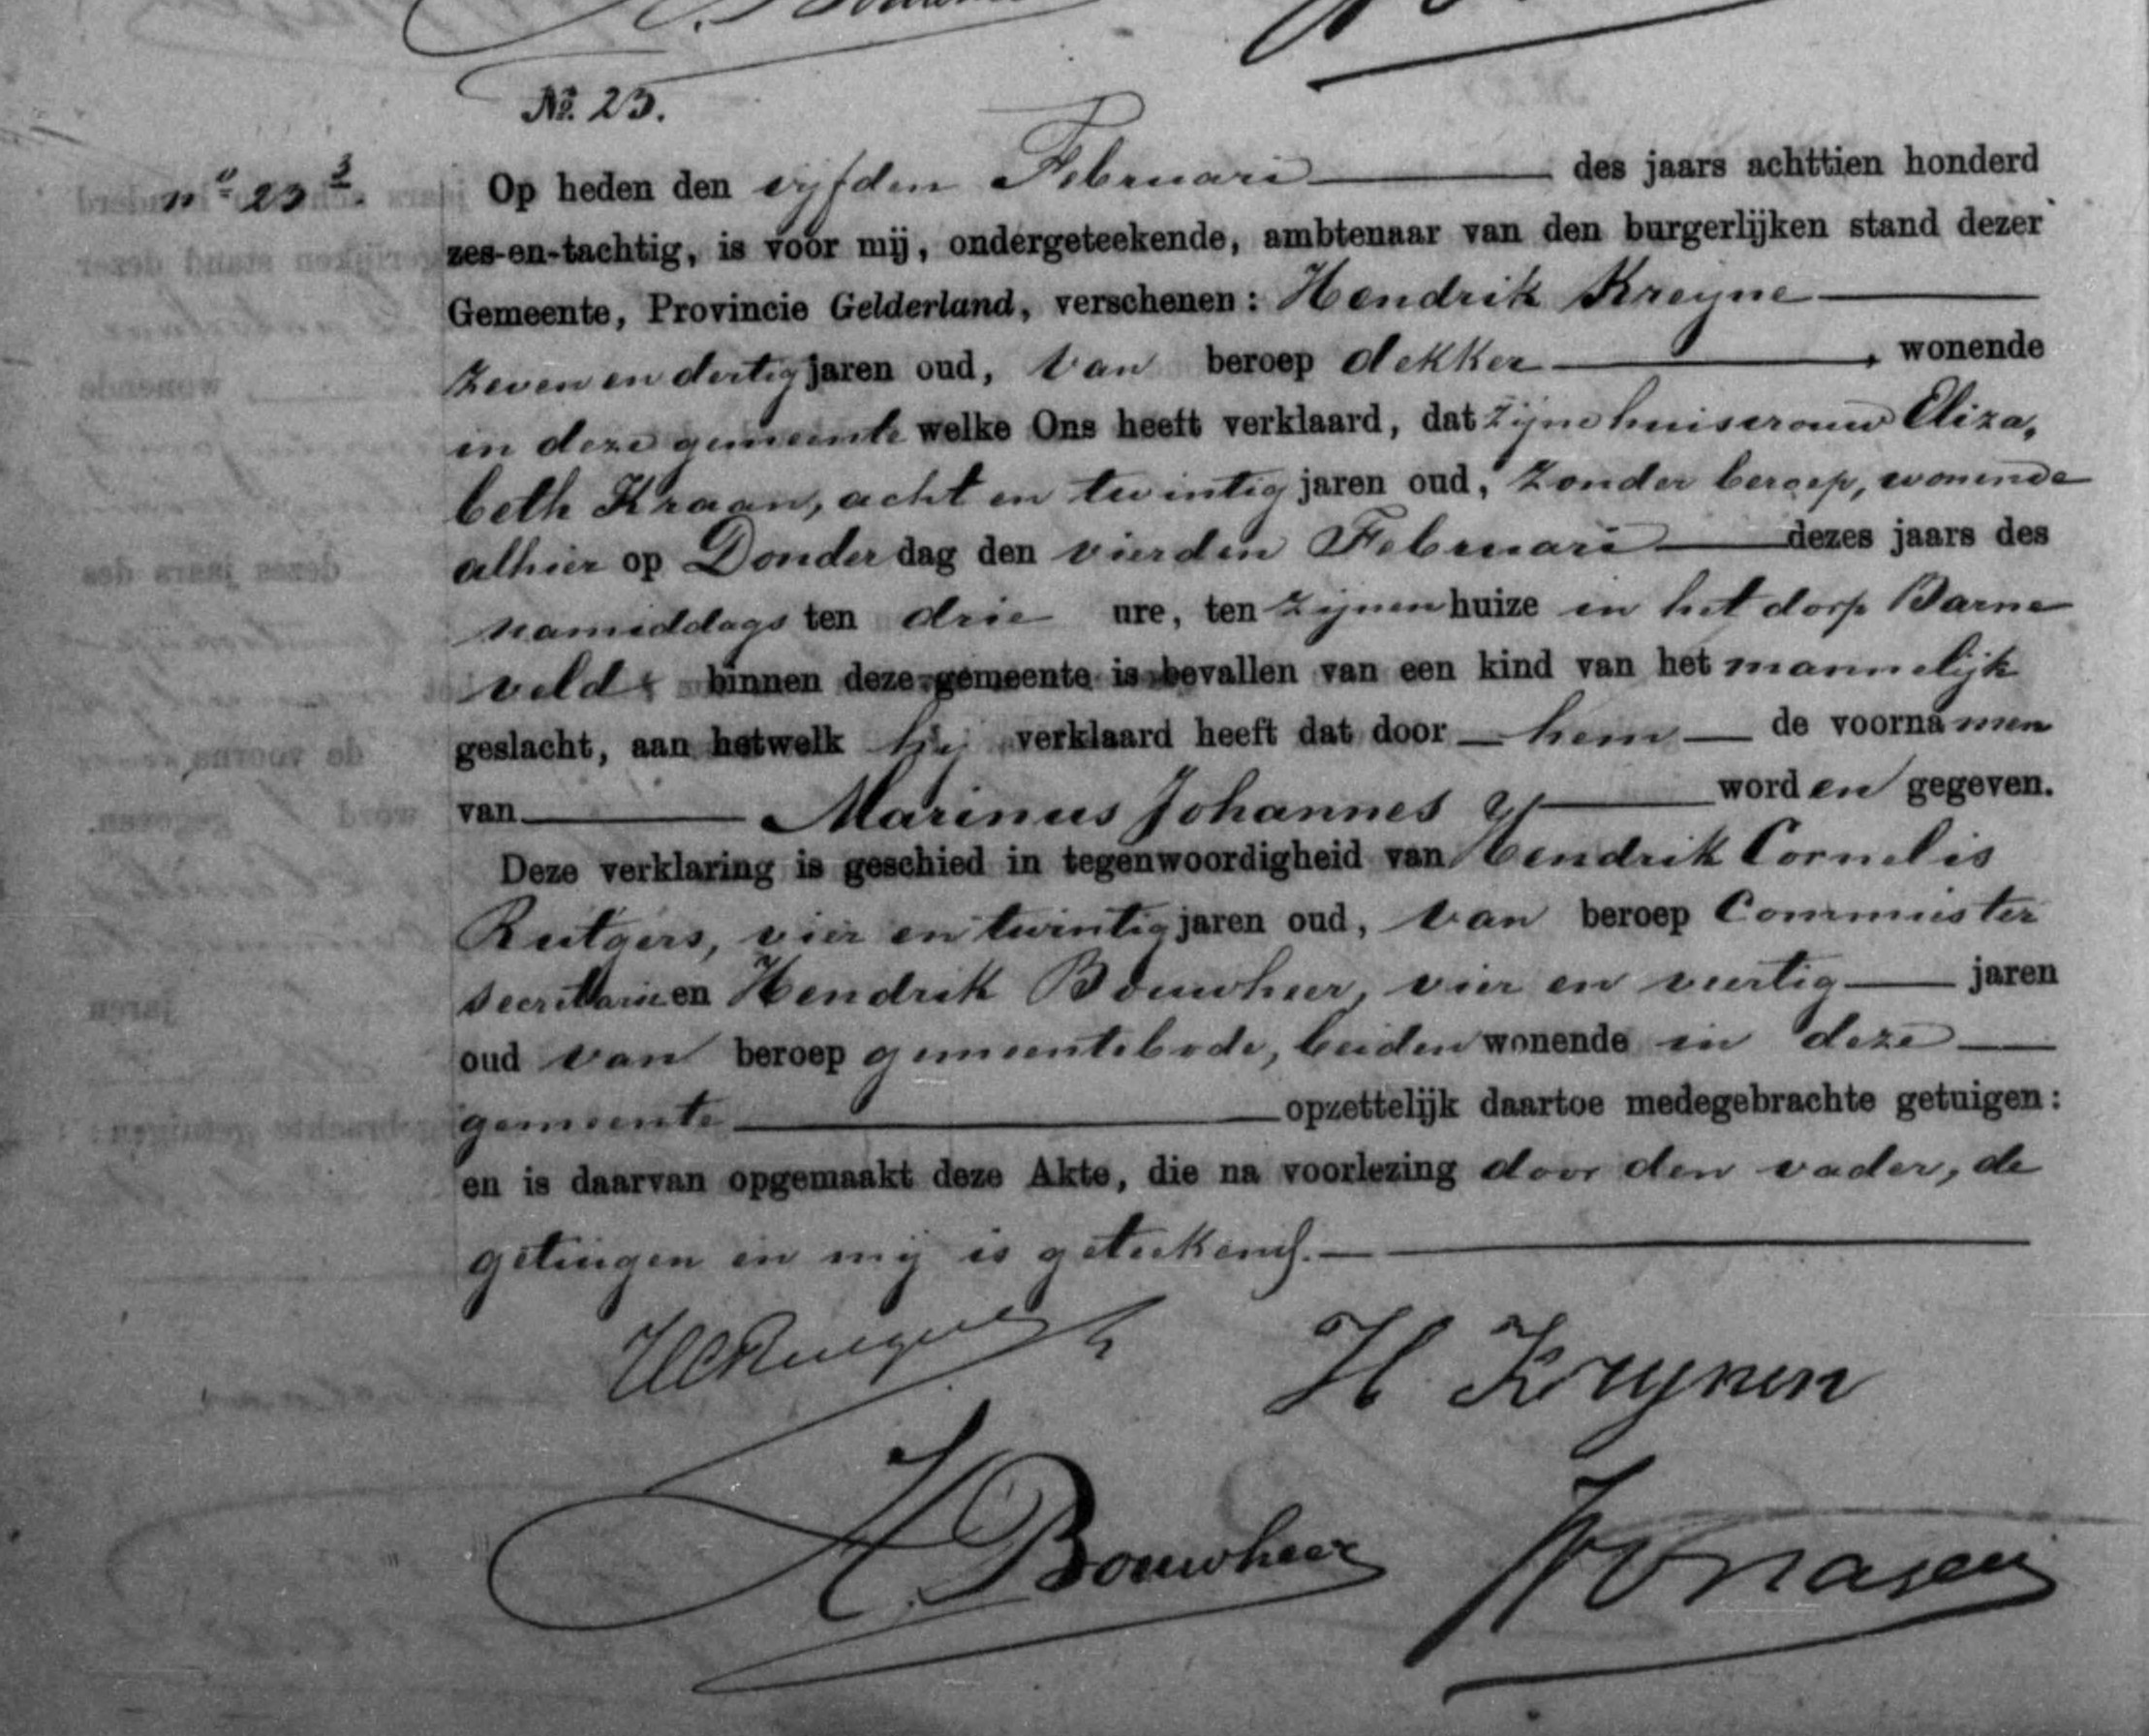 Nº. 23.
nº 23
Op heden den vijfden Februari des jaars achttien honderd
zes-en-tachtig, is voor mij, ondergeteekende, ambtenaar van den burgerlijken stand dezer
Gemeente, Provincie Gelderland, verschenen: Hendrik Kreyne
zeven en dertig jaren oud, van beroep dekker, wonende
in deze gemeente welke Ons heeft verklaard, dat zijne huisvrouw Eliza,
beth Kraan, acht en twintig jaren oud, zonder beroep, wonende
alhier op Donderdag den vierden Februari dezes jaars des
namiddags ten drie ure, ten zijnen huize in het dorp Barne
veld binnen deze gemeente is bevallen van een kind van het mannelijk
geslacht, aan hetwelk hij verklaard heeft dat door hem de voornamen
van Marinus Johannes worden gegeven.
Deze verklaring is geschied in tegenwoordigheid van Hendrik Cornelis
Rutgers, vier en twintig jaren oud, van beroep Commies ter
secretarie en Hendrik Bouwheer, vier en veertig jaren
oud van beroep gemeentebode, beiden wonende in deze
gemeente opzettelijk daartoe medegebrachte getuigen:
en is daarvan opgemaakt deze Akte, die na voorlezing door den vader, de
getuigen en mij is geteekend.
H Kruynen
H. Bouwheer